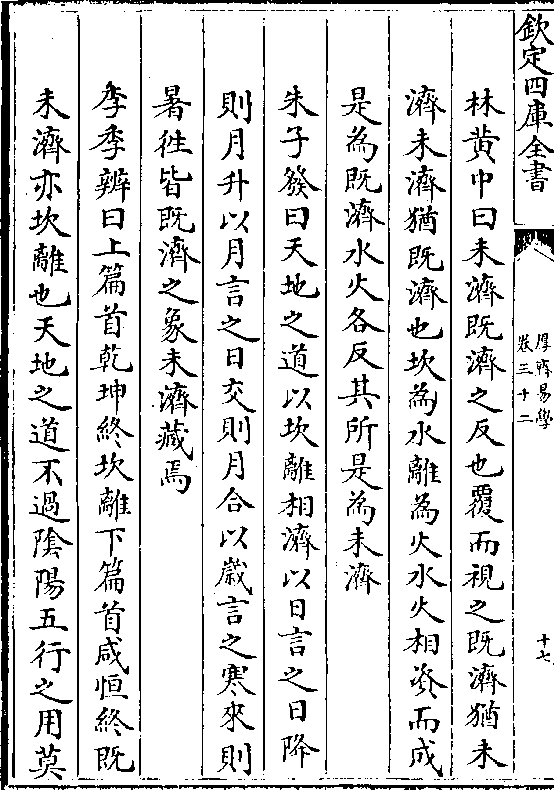 欽定四庫全書
厚齋易學
卷三十二
十七
林黄中曰未濟既濟之反也覆而視之既濟猶未
濟未濟猶既濟也坎為水離為火水火相資而成
是為既濟水火各反其所是為未濟
朱子發曰天地之道以坎離相濟以日言之日降
則月升以月言之日交則月合以歲言之寒來則
暑徃皆既濟之象未濟藏焉
李季辨曰上篇首乾坤終坎離下篇首咸恒終既
未濟亦坎離也天地之道不過隂陽五行之用莫